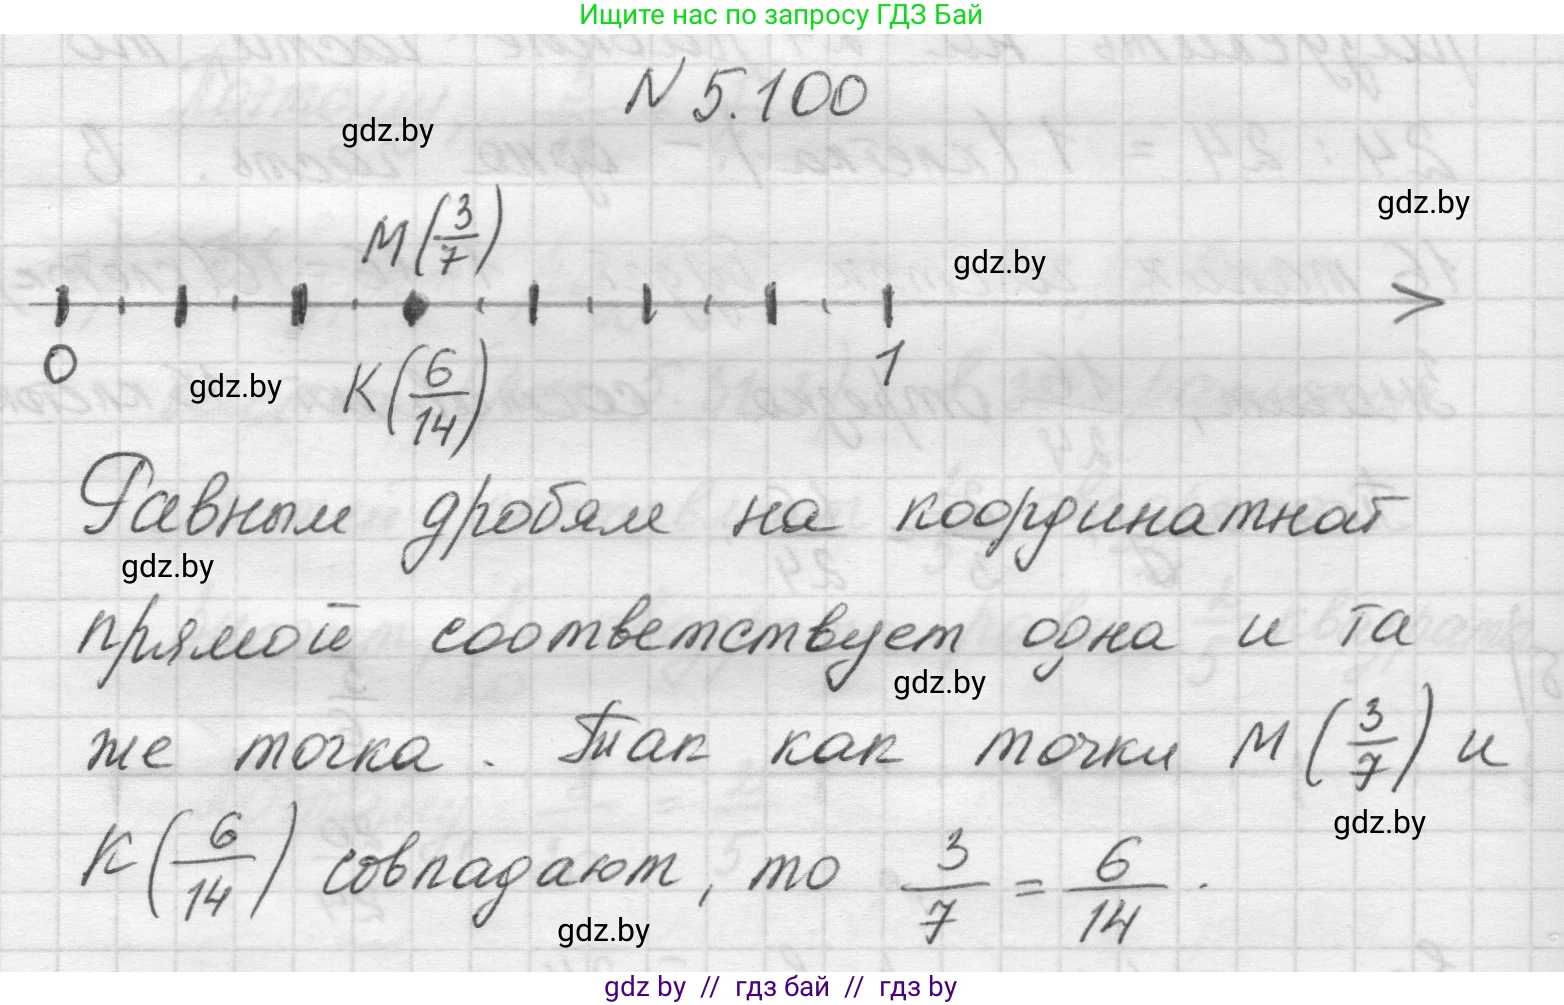 Ищите нас по запросу ГДЗ Бай
N 5.100
gdz.by
gdz.by
M(3/7)
gdz.by
0
1
gdz.by
K(6/14)
Равным дробям на координатной
gdz.by
прямой соответствует одна и та
gdz.by
же точка. Так как точки M(3/7) и
gdz.by
K(6/14) совпадают, то 3/7 = 6/14.
gdz.by
gdz by // гдз бай // гдз by